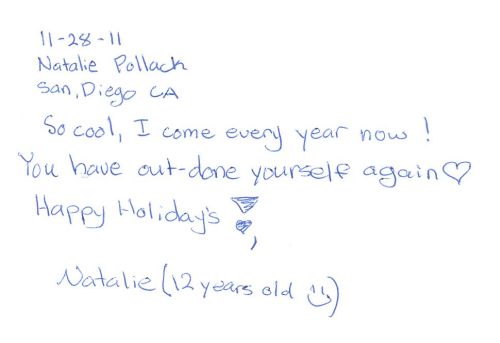 11-28-11
Natalie Pollack
San, Diego CA
So cool, I come every year now !
You have out-done yourself again♡
Happy Holiday's
Natalie (12 years old ☺)